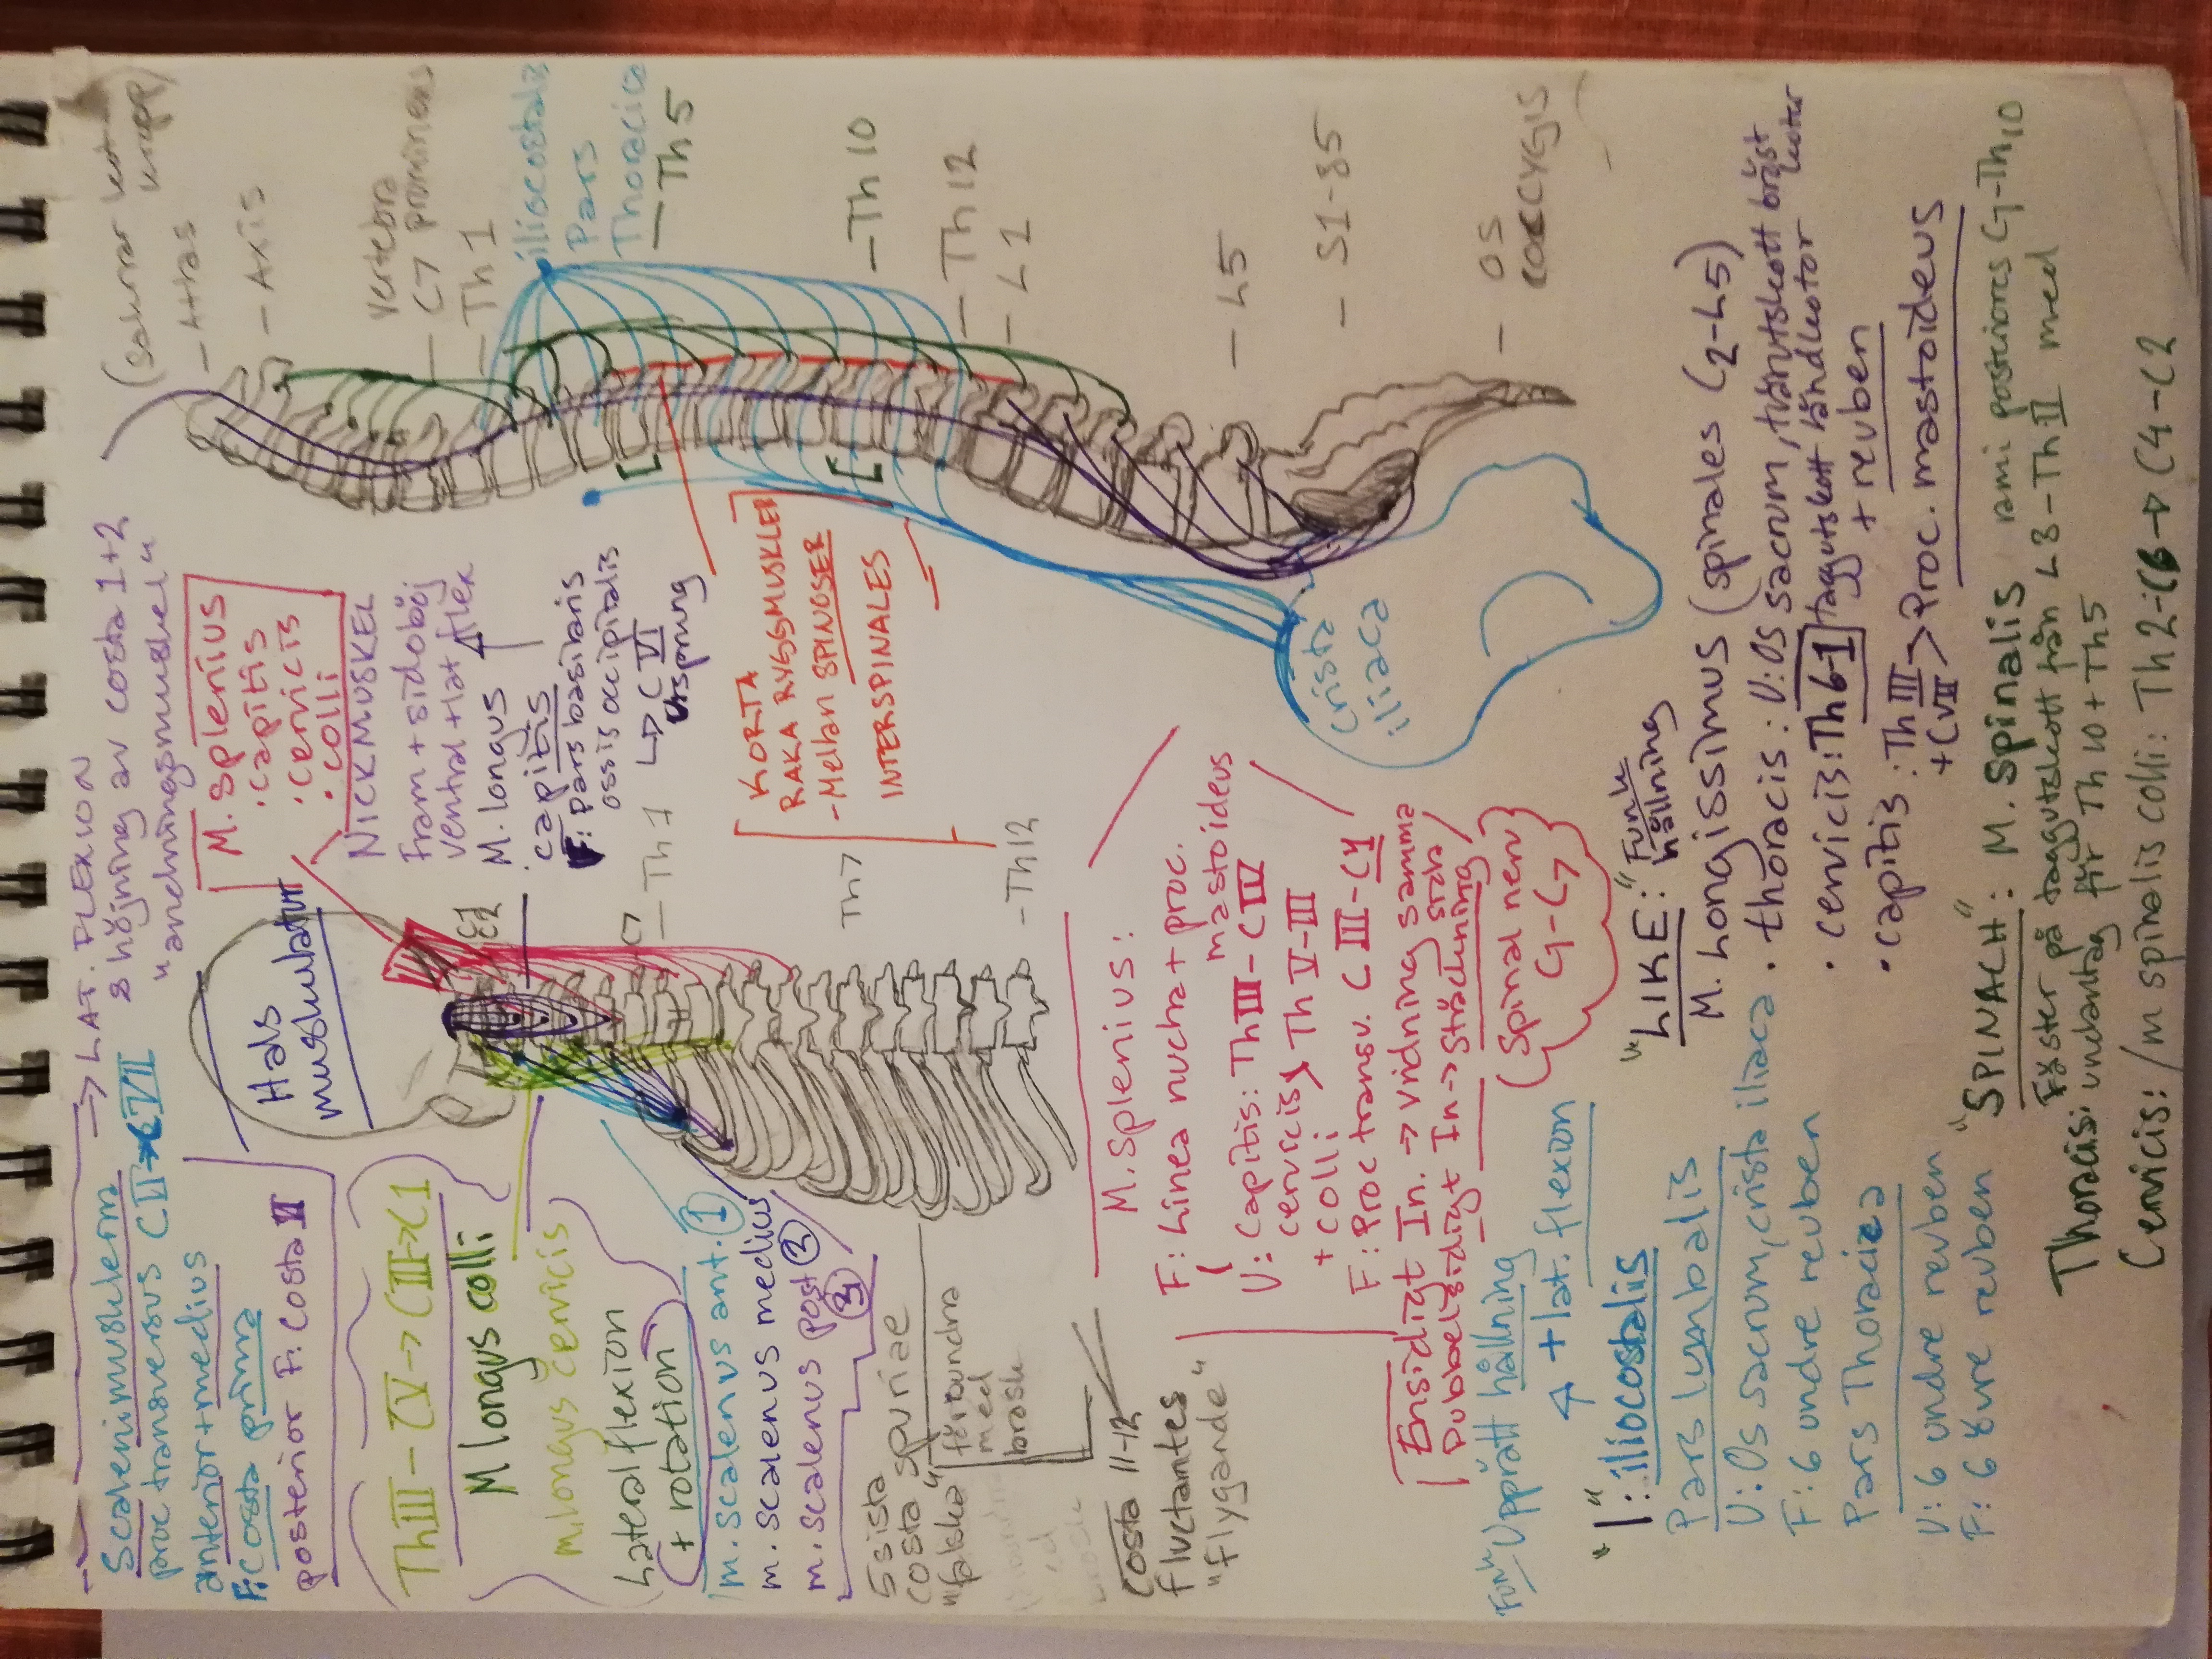 → LAT. FLEXION
& höjning av costa 1+2
"andningsmuskel"
Scalenimusklerna
proc transversus CII→CVII
anterior+medius
F: Costa prima
posterior F. Costa II
Hals
muskulatur
M. Splenius
· capitis
· cervicis
· colli
NICKMUSKEL
fram + sidoböj
ventral + lat flex
M. longus
capitis
F: pars basilaris
ossis occipitalis
↳ CVI
Ursprung
ThIII - CV → CIII → C1
M longus colli
m. longus cervicis
Lateral flexion
(+ rotation)
m. scalenus ant. ①
m. scalenus medius ②
m. scalenus post ③
C1
C2
C7
— Th 1
Th7
- Th12
5 sista
costa spuriae
"falska"
förbundna
med
brosk
Costa 11-12
fluctantes
"flygande"
— Atlas
— Axis
vertebra
— C7 prominens
— Th 1
iliocostalis
Pars
Thoracica
— Th 5
— Th 10
— Th 12
— L 1
— L5
— S1-S5
— OS
COCCYGIS
KORTA
RAKA RYGGMUSKLER
- Mellan SPINOSER
INTERSPINALES
Crista
iliaca
M. Splenius:
F: Linea nucha + proc.
mastoideus
U: Capitis: ThIII - CIV
cervicis > Th V-III
+ colli
F: Proc transv. CIII - C1
Ensidigt In. → vridning samma
sida
Dubbelsidigt In → sträckning
(Spinal nerv)
C1-C7
Funk Upprätt hållning
+ lat. flexion
"I": iliocostalis
Pars lumbalis
U: Os sacrum, crista iliaca
F: 6 undre revben
Pars Thoracica
U: 6 undre revben
F: 6 övre revben
"LIKE:" Funk
hållning
M. Longissimus (spinales C2-L5)
· thoracis: U: Os sacrum, tvärutskott bröst
kotor
· cervicis: Th6-1 taggutskott ländkotor
+ revben
· capitis: ThIII > Proc. mastoideus
+ CVII
"SPINACH": M. Spinalis rami posteriores C1-Th10
Fäster på taggutskott från L3 - ThII med
Thoracis: undantag för Th 10 + Th5
Cervicis: /m spinalis colli: Th 2-C6 → C4-C2